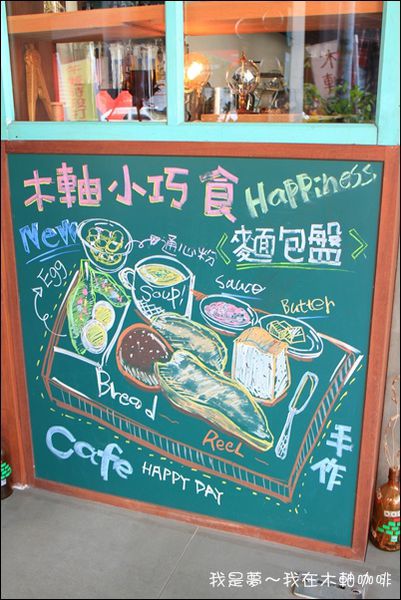 木軸小巧食 Happiness
New 通心粉 《麵包盤》
Egg Soup! Sauce Butter
Bread
Reel
手作
Cafe HAPPY DAY
我是夢～我在木軸咖啡